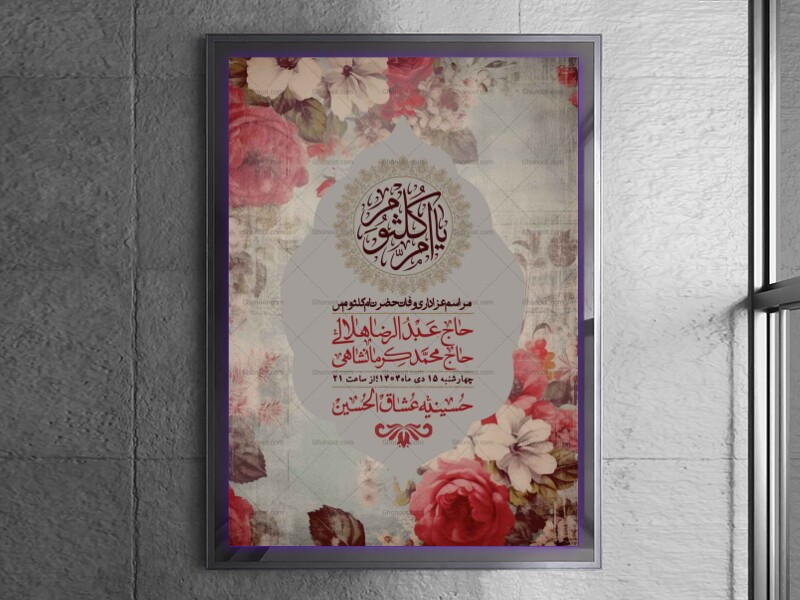 یا ام کلثوم
مراسم عزاداری وفات حضرت ام کلثوم س
حاج عَبْدُالرضا هلالی
حاج محمّد کرمانشاهی
چهارشنبه ۱۵ دی ماه ۱۴۰۲ از ساعت ۲۱
حسینیه عُشاق الحُسین
Ghonoot.com